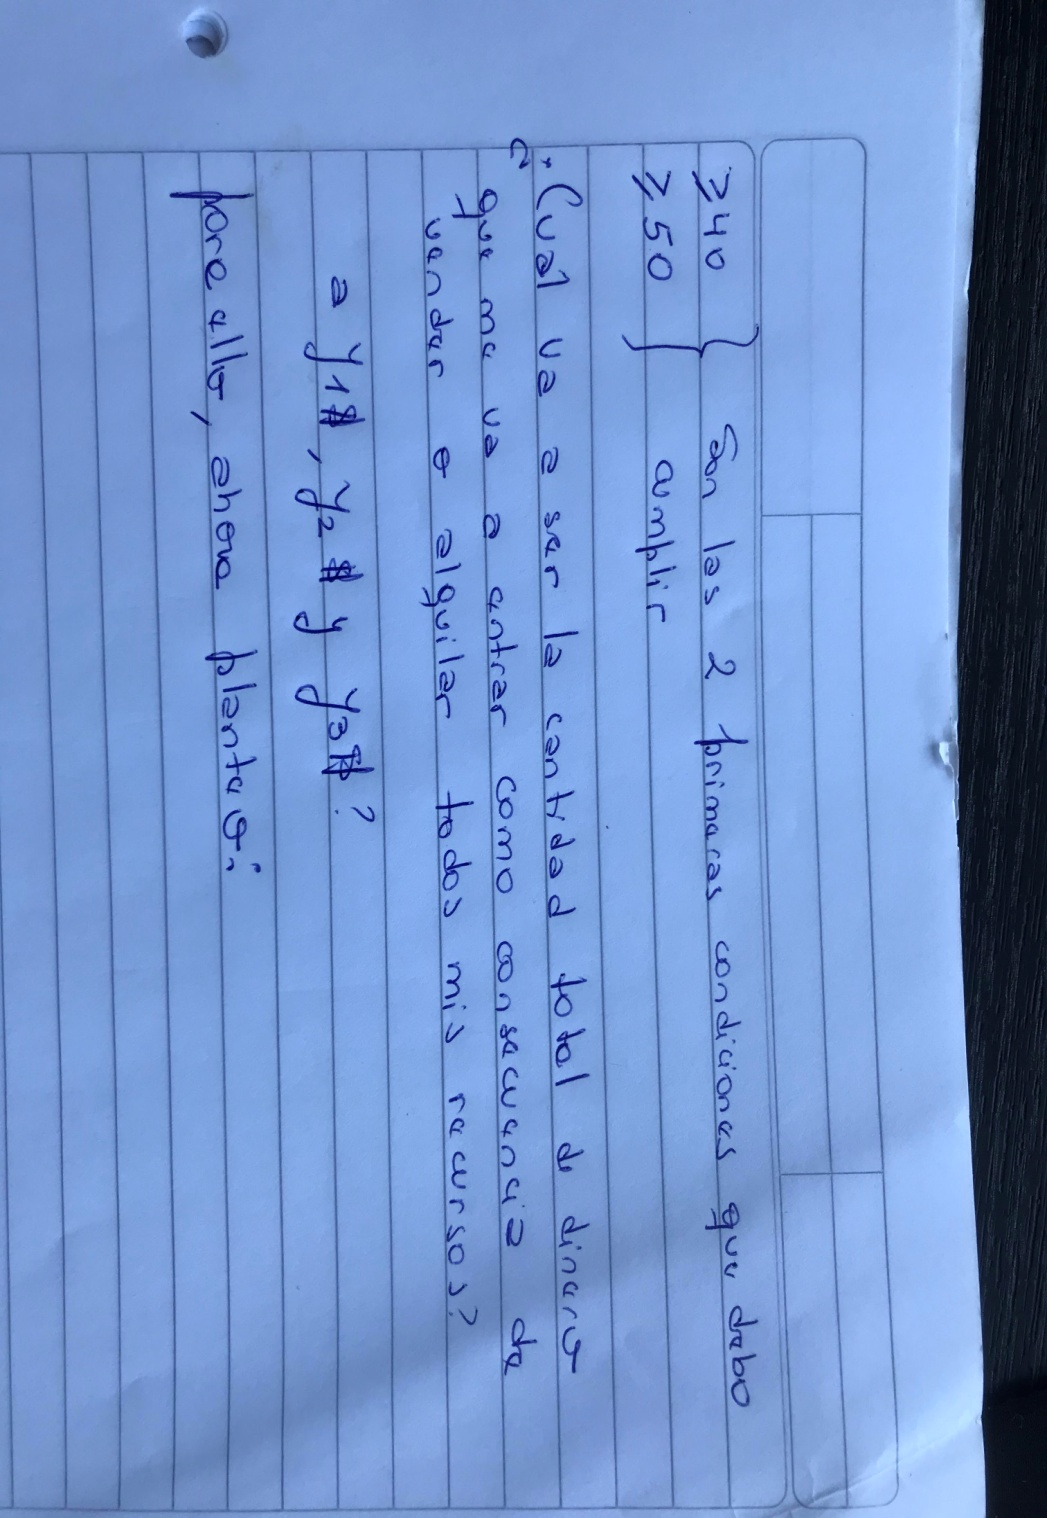 ≥40 } Son las 2 primeras condiciones que debo
≥50 } cumplir
¿Cuál va a ser la cantidad total de dinero
que me va a entrar como consecuencia de
vender o alquilar todos mis recursos?
a y1$, y2$ y y3$?
para ello, ahora planteo: